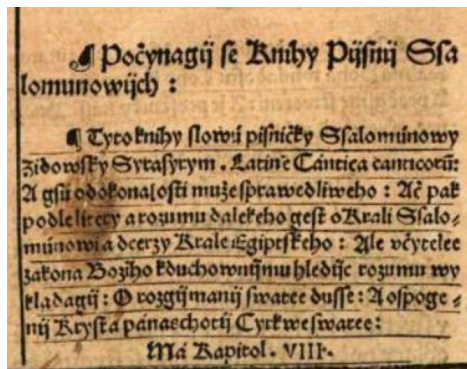 ¶ Počynagij se Knihy Pijsnij Ssa
lomunowijch :
¶ Tyto knihy slowú pisničky Ssalomúnowy
Zidowsky Syrasyrym . Latině Cántica canticorū:
A gsú o dokonalosti muže sprawedliweho : Ač pak
podle litery a rozumu dalekeho gest o Krali Ssalo⸗
múnowi a dcerzy Krale Egiptskeho : Ale včytelee
zakona Božiho k duchownijmu hledijc rozumu wy
kladagij : O rozgijmanij swatee dusse : A o spoge⸗
nij Krysta pána s chotij Cyrkwe swatee :
Má Kapitol . VIII .